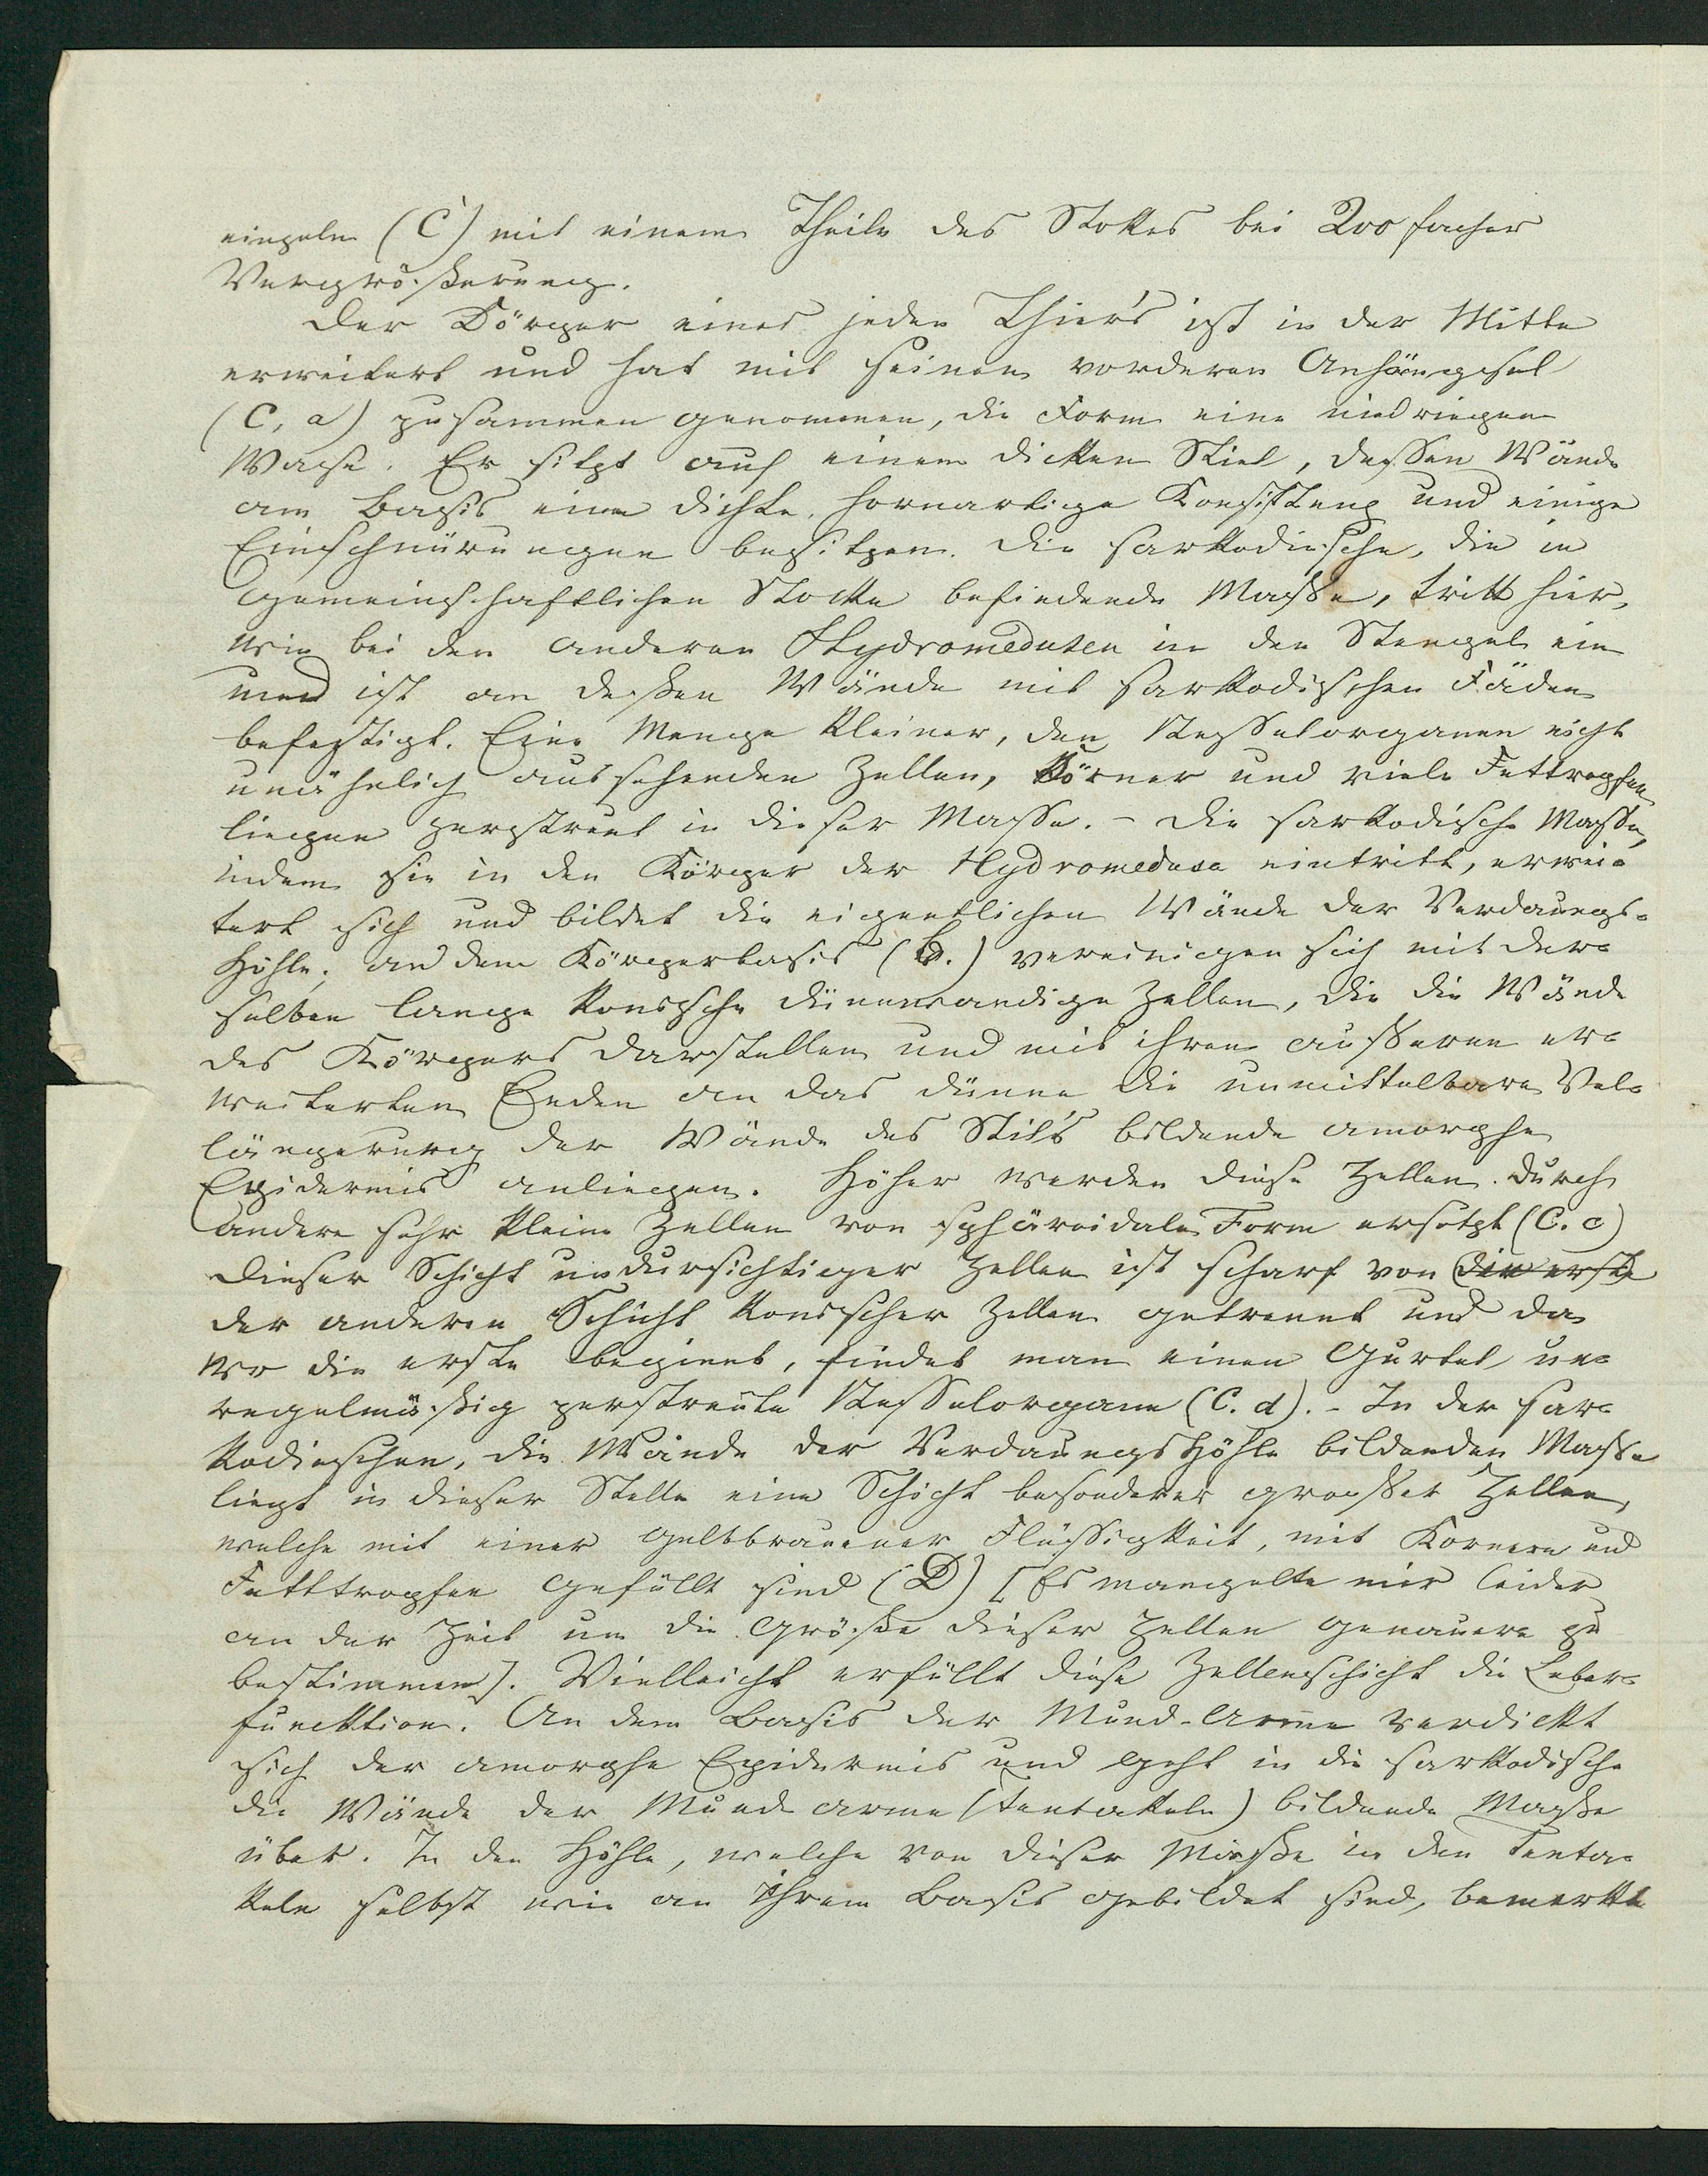 einzeln (C) mit einem Theile des Stokes bei 200 facher
Vergrößerung.
Der Körper eines jeden Thier's ist in der Mitte
erweitert und hat mit seinem vorderen Anhängsel
(C, a) zusammen genommen, die Form eine niedriegen
Wase. Er sitzt auf einem dicken Stiel, dessen Wände
am Basis eine dichte, hornartige Konsistenz und einige
Einschnürungen besitzen. Die sarkodische, die in
gemeinschaftlichen Stocke befindende Masse, tritt hier,
wie bei den anderen Hydromedusen in den Stengel ein
und ist an deßen Wände mit sarkodischen Fäden
befestigt. Eine Menge kleiner, den Nesselorganen nicht
unähnlich aussehenden Zellen, Körner und viele Fettropfen
liegen zerstreut in dieser Masse. – Die sarkodische Masse,
indem sie in den Körper der Hydromedusa eintritt, erwei-
tert sich und bildet die eigentlichen Wände der Verdaungs-
Höhle; an dem Körperbasis (b.) vereinigen sich mit der-
selben lange konische dünnwandige Zellen, die die Wände
des Körpers darstellen und mit ihren außeren er-
weiterten Enden an das dünne die unmittelbare Vel-
längerung der Wände des Stils bildende amorphe
Epidermis anliegen. Höher werden diese Zellen durch
andere sehr kleine Zellen von sphäroidale Form ersetzt (C. c)
Dieser Schicht undursichtieger Zellen ist scharf von die erste
der anderen Schicht konischer Zellen getrennt und da
wo die erste beginnt, findet man einen Gurtel un-
regelmäßig zerstreute Nesselorgane (C. d). – In der sar-
kodischen, die Wände der Verdaungshöhle bildenden Masse
liegt in dieser Stelle eine Schicht besonderer großer Zellen,
welche mit einer gelbbrauner Flüssigkeit, mit Kornern und
Fetttropfen gefüllt sind (D) [Es mangelte mir leider
an der Zeit um die Größe dieser Zellen genauere zu
bestimmen]. Vielleicht erfüllt diese Zellenschicht die Leber-
funcktion. An dem Basis der Mund-Arme verdickt
sich der amorphe Epidermis und geht in die sarkodische
die Wände der Mundarme (Tentakeln) bildende Maße
über. In den Höhle, welche von dieser Maße in den Tenta-
keln selbst wie an Ihrem Basis gebildet sind, bemerkte